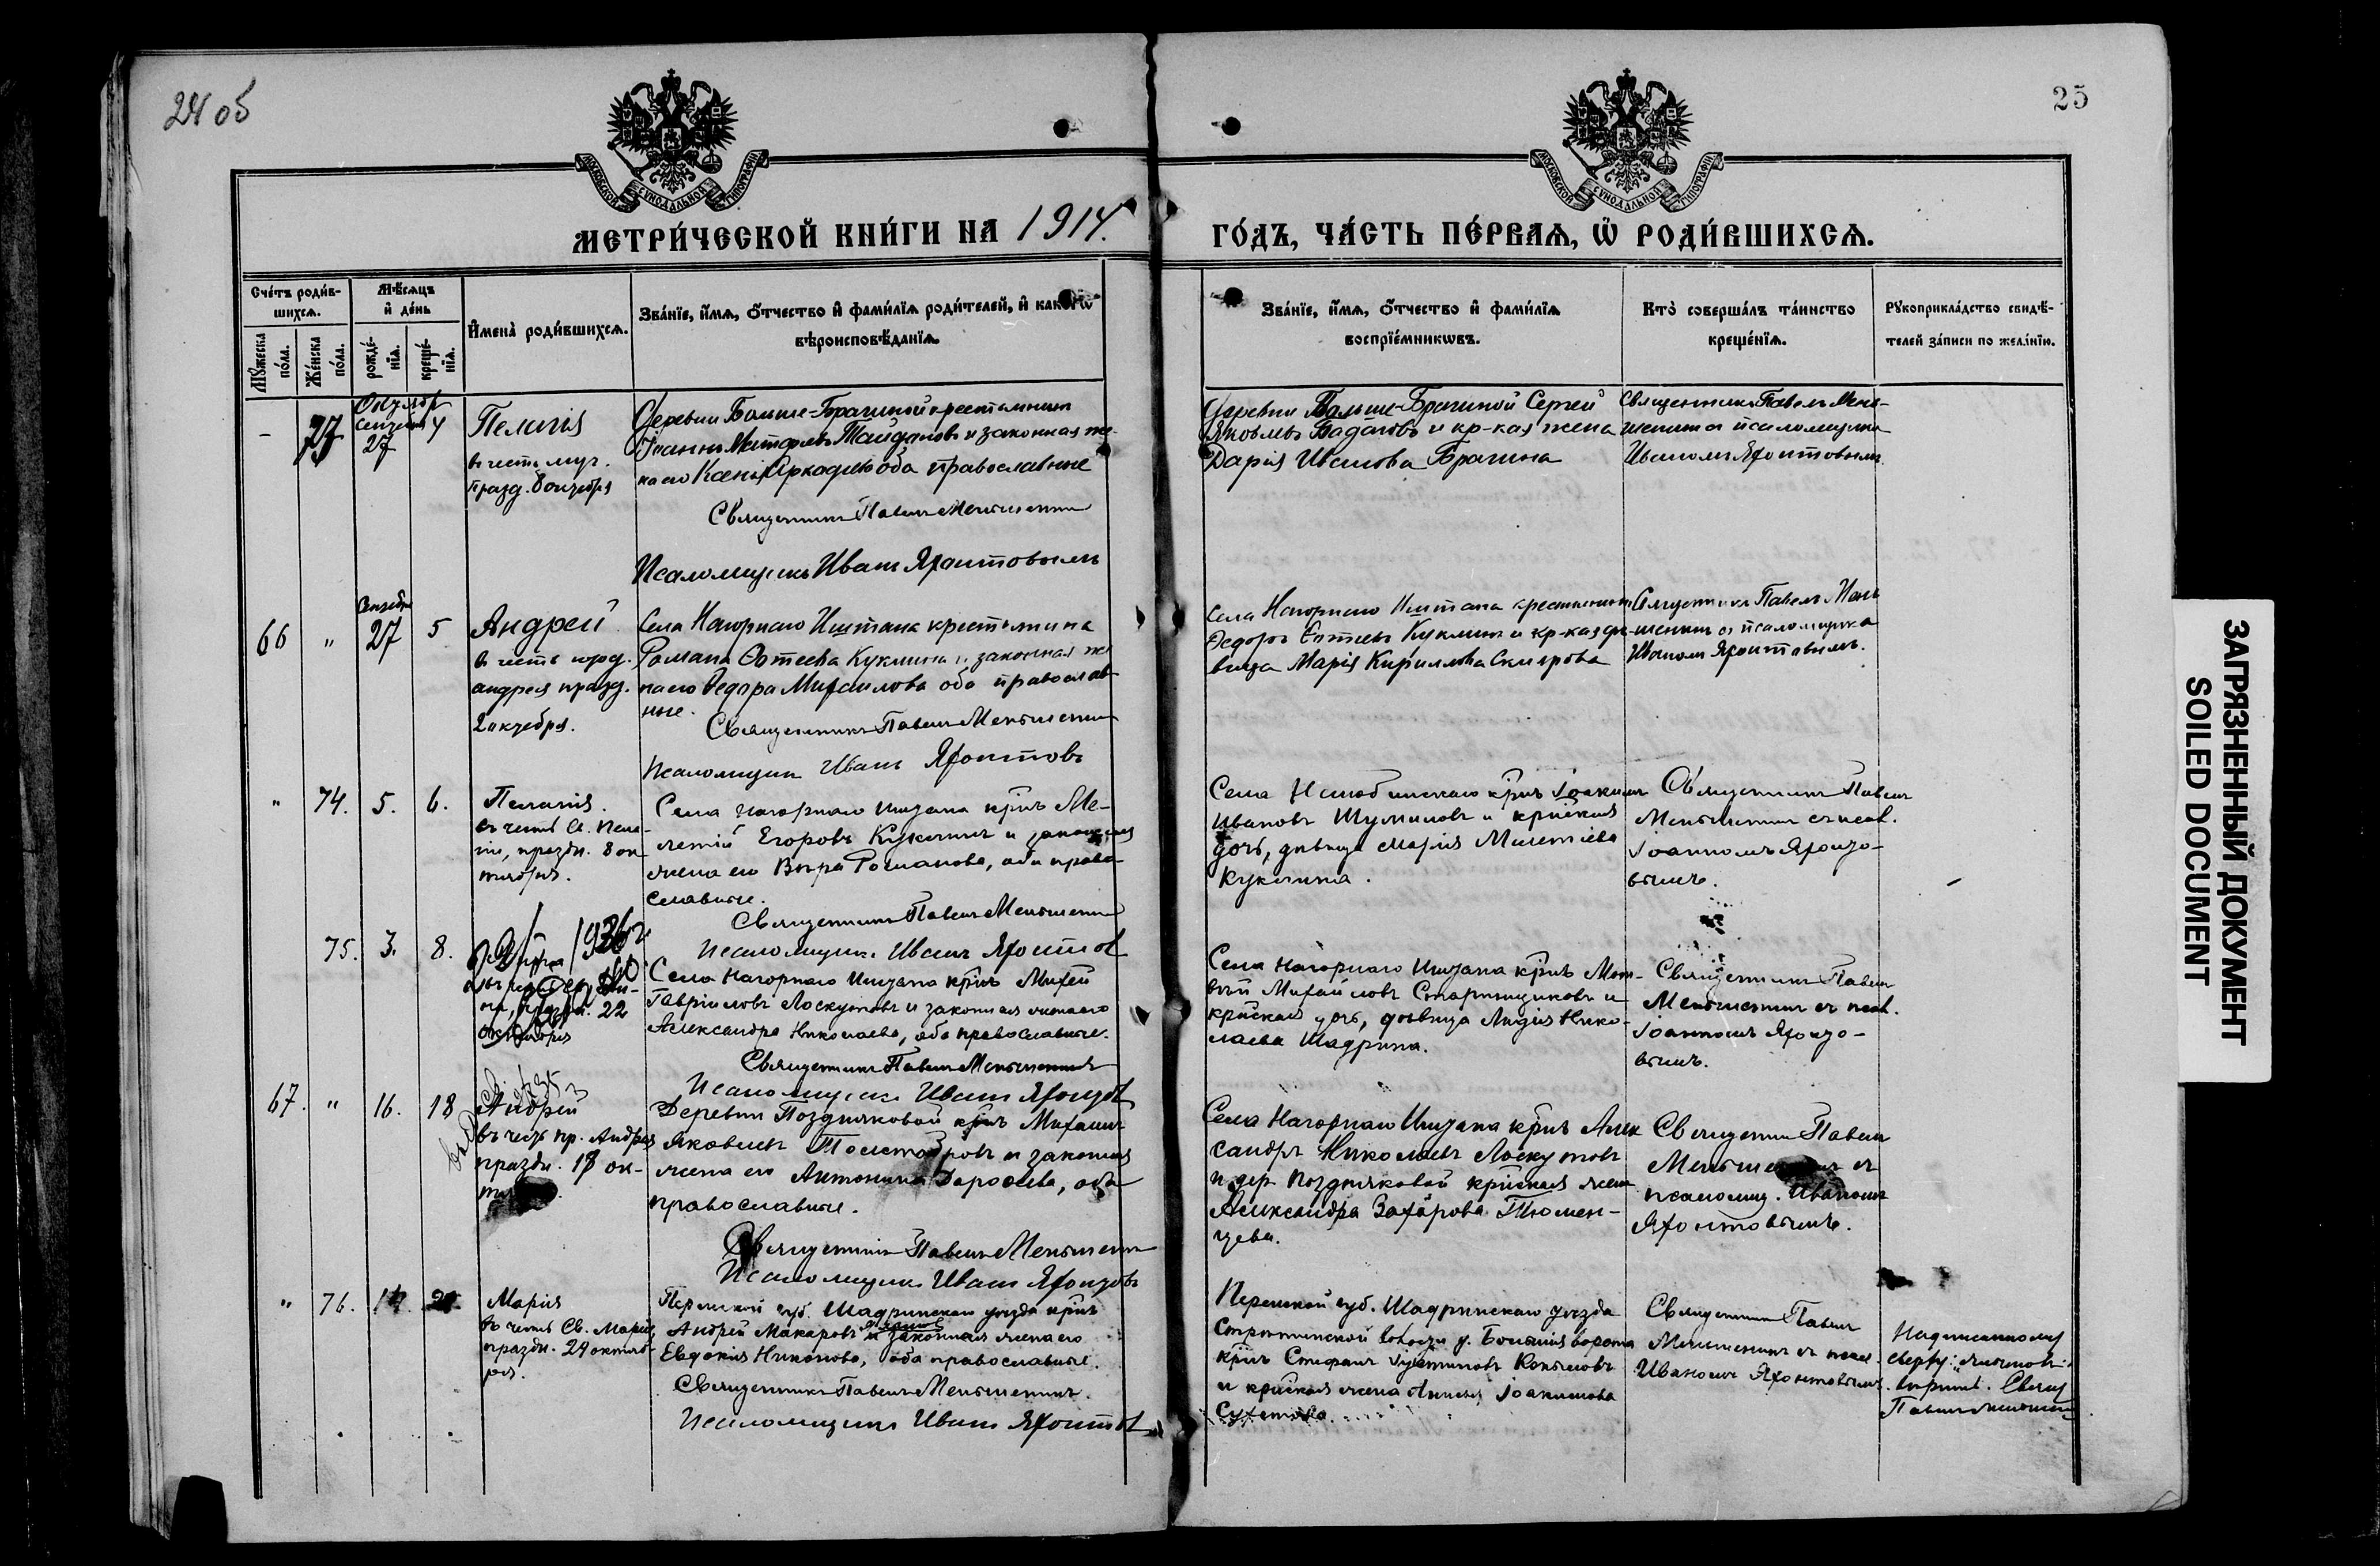 24 об
25
МОСКОВСКОЙ СѴНОДАЛЬНОЙ ТИПОГРАФІИ
МОСКОВСКОЙ СѴНОДАЛЬНОЙ ТИПОГРАФІИ
МЕТРИ́ЧЕСКОЙ КНИ́ГИ НА 1914.
ГО́ДЪ, ЧА́СТЬ ПЕ́РВАѦ, Ѽ РОДИ́ВШИХСѦ.
Сче́тъ роди́в-
шихсѧ.
Мѣ́сѧцъ
и҆ де́нь
И҆мена̀ роди́вшихсѧ.
Зва́нїе, и҆́мѧ, ѻ҆́тчество и҆ фами́лїѧ роди́телей, и҆ како́гѡ
вѣроисповѣ́данїѧ.
Мꙋ́жеска
по́ла.
Же́нска
по́ла.
рожде́-
нїѧ.
креще́-
нїѧ.
Зва́нїе, и҆́мѧ, ѻ҆́тчество и҆ фами́лїѧ
воспрїе́мникѡвъ.
Кто̀ соверша́лъ та́инство
креще́нїѧ.
Рꙋкоприкла́дство свидѣ́-
телей за́писи по жела́нїю.
- 73 27 4
Пелагія
въ честь муч.
празд. 8 октября
Деревни Больше-Брагиной крестьянинъ
Іоаннъ и законная же-
на его Ксенія оба православные
Священникъ Павелъ Меньшенинъ
Псаломщикъ Иванъ Яхонтовымъ
Деревни Больше-Брагиной Сергей
Яковлевъ и кр-кая жена
Дарія Иванова Брагина
Священникъ Павелъ Мень-
шенинъ съ псаломщикомъ
Иваномъ Яхонтовымъ
66 " 27 5
Андрей
въ честь юрод.
андрея празд.
2 октября.
Села Нагорнаго Иштана крестьянина
Романа Кукмина и законная же
на его Федора Михаилова оба православ-
ные.
Священникъ Павелъ Меньшенинъ
Псаломщикъ Иванъ Яхонтовъ
Села Нагорнаго Иштана крестьянинъ
Федоръ Кукминъ и кр-кая дѣ-
вица Марія Кириллова
Священникъ Павелъ Мень
шенинъ съ псаломщикомъ
Иваномъ Яхонтовымъ.
" 74. 5. 6.
Пелагія.
въ честь св. Пела-
гіи, праздн. 8 ок-
тября.
Села Нагорнаго Иштана кр-нъ Ме-
летій Егоровъ Кукминъ и законная
жена его Вѣра Романова, оба право-
славные.
Священникъ Павелъ Меньшенинъ
Псаломщикъ Иванъ Яхонтовъ
Села кр-нъ Іоакимъ
Ивановъ Шумиловъ и кр-ская
дочь, дѣвица Марія Милетіева
Кукмина.
Священникъ Павелъ
Меньшенинъ съ псал.
Іоанномъ Яхонто-
вымъ.
75. 3. 8.
1936 г
22
октября
Села Нагорнаго Иштана кр-нъ Михей
Гавріиловъ Лоскутовъ и законная жена его
Александра Николаева, оба православные.
Священникъ Павелъ Меньшенинъ
Псаломщикъ Иванъ Яхонтовъ
Села Нагорнаго Иштана кр-нъ Мат-
вѣй Михайловъ Старынщиковъ и
кр-ская дочь, дѣвица Лидія Нико-
лаева Шадрина.
Священникъ Павелъ
Меньшенинъ съ псал.
Іоанномъ Яхонто-
вымъ.
67. " 16. 18
Андрей
въ честь пр. Андрея
праздн. ок-
Деревни Поздняковой кр-нъ Михаилъ
Яковлевъ и законная
жена его Антонина Дороѳеева, оба
православные.
Священникъ Павелъ Меньшенинъ
Псаломщикъ Иванъ Яхонтовъ
Села Нагорнаго Иштана кр-нъ Алек
сандръ Николаевъ Лоскутовъ
и дер. Поздняковой кр-нская жена
Александра Захарова Тюмен-
цева.
Священникъ Павелъ
Меньшенинъ съ
псаломщ. Иваномъ
Яхонтовымъ.
" 76.
Марія
въ честь Св. Маріи,
праздн. 29 октяб-
ря.
Пермской губ. Шадринскаго уѣзда кр-нъ
Андрей Макаровъ и законная жена его
Евдокія Никонова, оба православные.
Священникъ Павелъ Меньшенинъ.
Псаломщикъ Иванъ Яхонтовъ
Пермской губ. Шадринскаго уѣзда
волости д.
кр-нъ Стефанъ
и кр-нская жена Іоакимова
Священникъ Павелъ
Меньшенинъ съ псал.
Иваномъ Яхонтовымъ.
Надписанному
сверху:
вѣрить. Свящ
Павелъ Меньшенинъ
ЗАГРЯЗНЕННЫЙ ДОКУМЕНТ
SOILED DOCUMENT